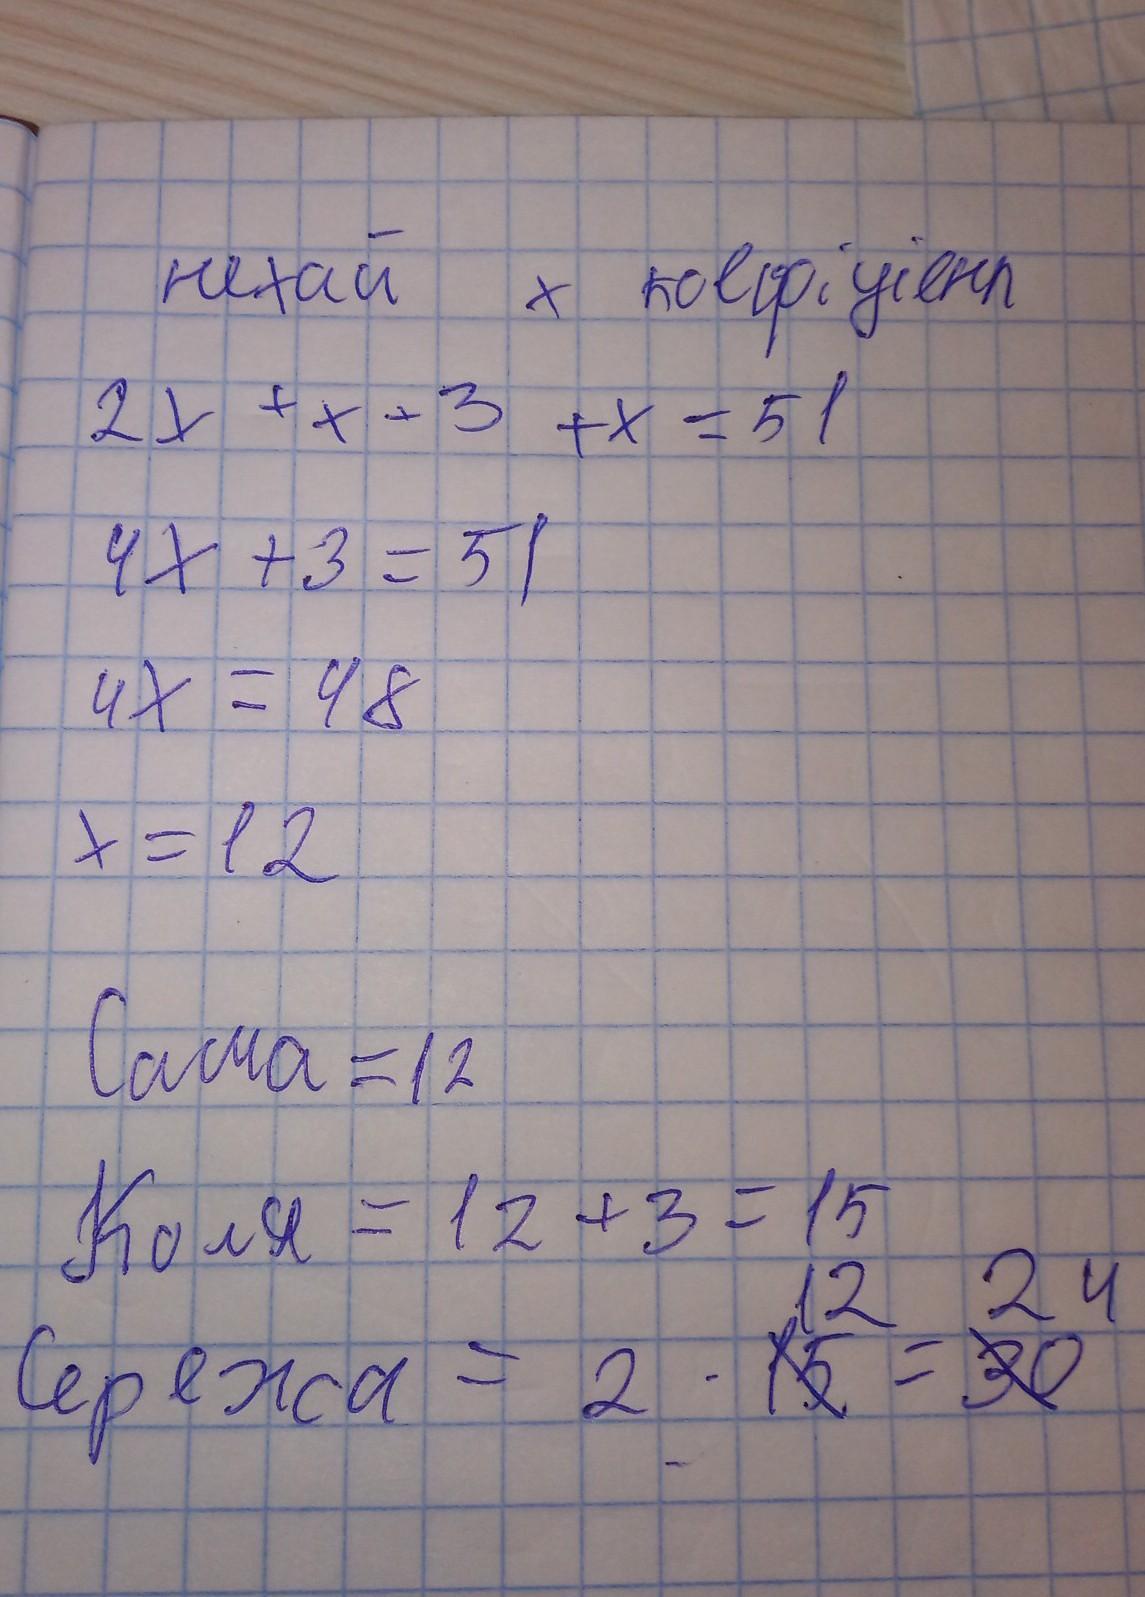 нехай х коефіцієнт
2x + x + 3 + x = 51
4x + 3 = 51
4x = 48
x = 12
Саша = 12
Коля = 12 + 3 = 15
12 24
Сережа = 2 · 15 = 30